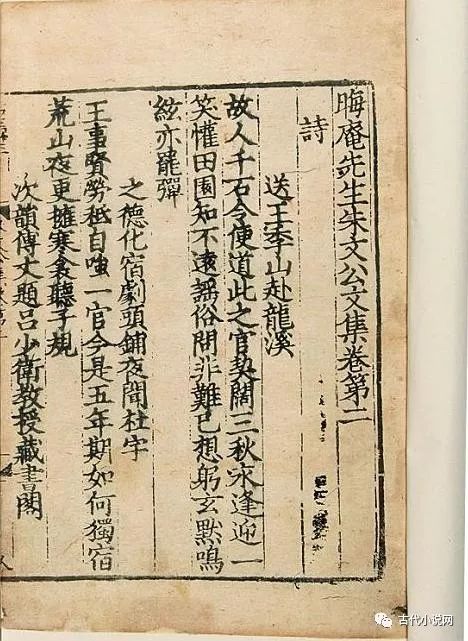 晦庵先生朱文公文集卷第二
詩
送王季山赴龍溪
故人千石令便道此之官契闊三秋永逢迎一
笑懽田園知不遠謡俗問非難已想躬玄默鳴
絃亦罷彈
之德化宿劇頭鋪夜聞杜宇
王事賢勞秪自嗤一官今是五年期如何獨宿
荒山夜更擁寒衾聽子規
次韻傅丈題吕少衛教授藏書閣
古代小说网